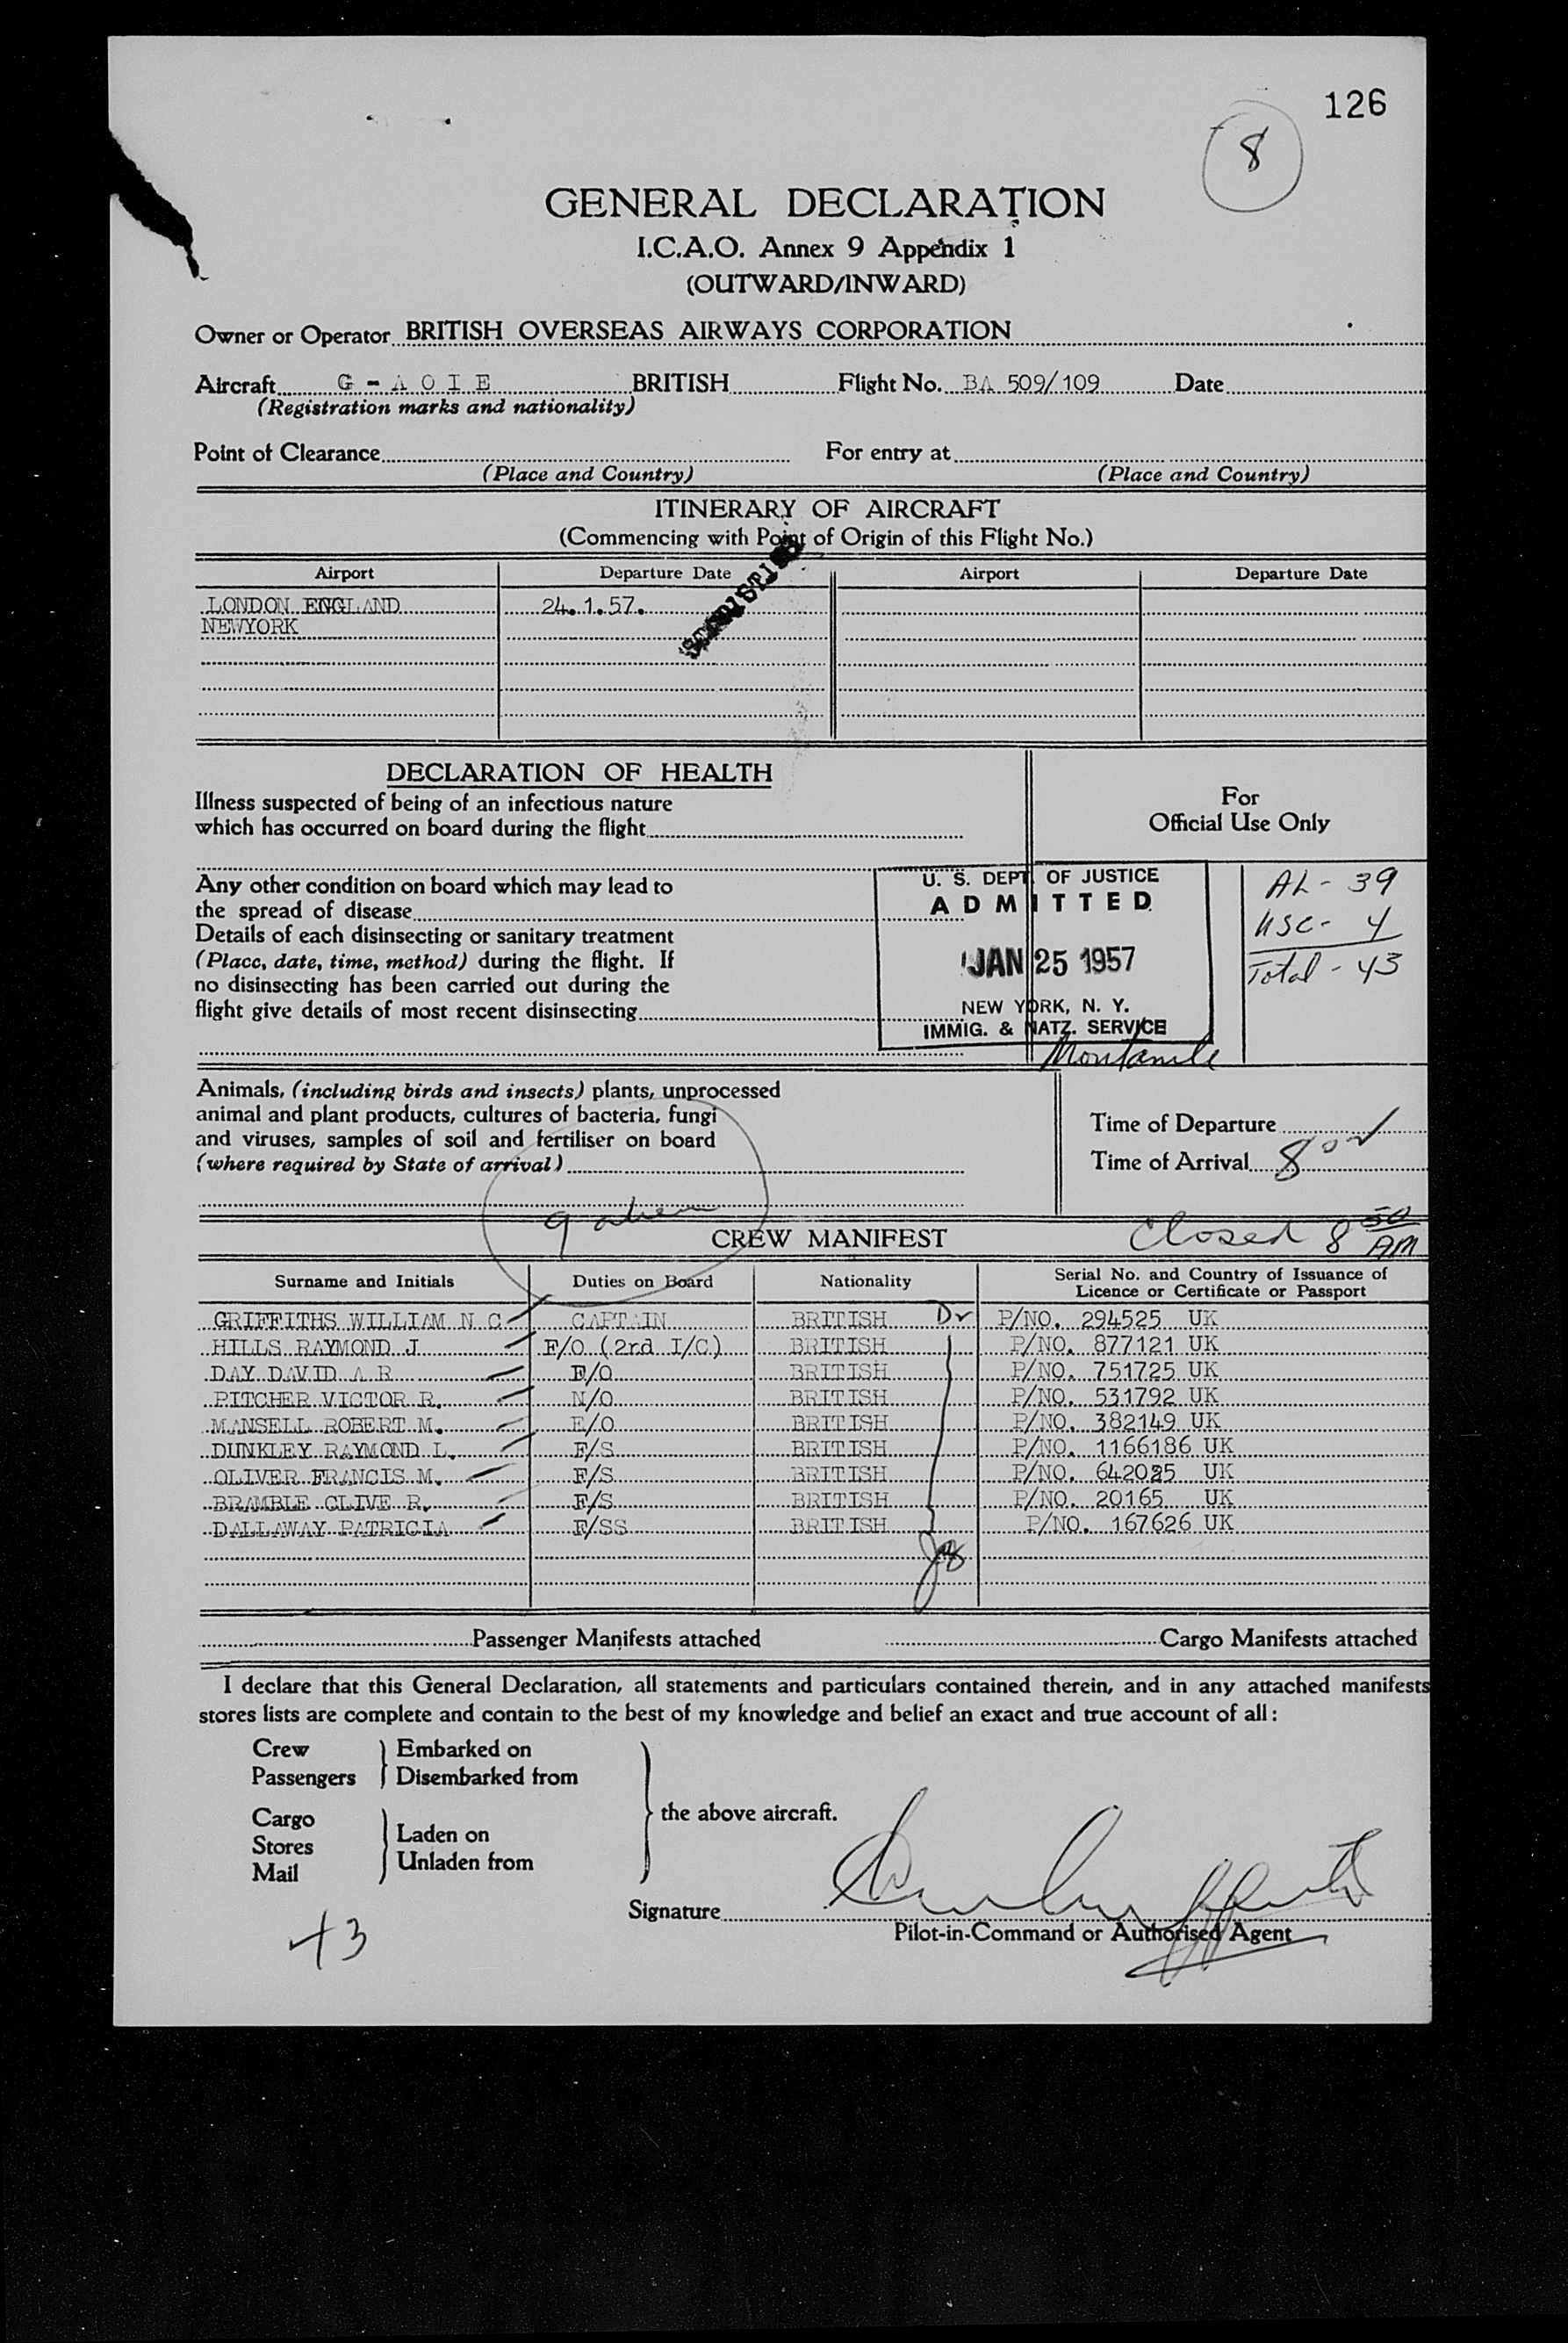 126
8
GENERAL DECLARATION
I.C.A.O. Annex 9 Appendix 1
(OUTWARD/INWARD)
Owner or Operator BRITISH OVERSEAS AIRWAYS CORPORATION
Aircraft G - A O I E BRITISH Flight No. BA 509/109 Date
(Registration marks and nationality)
Point of Clearance For entry at
(Place and Country) (Place and Country)
ITINERARY OF AIRCRAFT
(Commencing with Point of Origin of this Flight No.)
Airport Departure Date Airport Departure Date
LONDON ENGLAND 24.1.57.
NEWYORK
DECLARATION OF HEALTH
Illness suspected of being of an infectious nature
which has occurred on board during the flight
For
Official Use Only
Any other condition on board which may lead to
the spread of disease
Details of each disinsecting or sanitary treatment
(Place, date, time, method) during the flight. If
no disinsecting has been carried out during the
flight give details of most recent disinsecting
U. S. DEPT. OF JUSTICE
ADMITTED
JAN 25 1957
NEW YORK, N. Y.
IMMIG. & NATZ. SERVICE
AL - 39
USC - 4
Total - 43
Animals, (including birds and insects) plants, unprocessed
animal and plant products, cultures of bacteria, fungi
and viruses, samples of soil and fertiliser on board
(where required by State of arrival)
Time of Departure
Time of Arrival 8 00
9
CREW MANIFEST
Closed 8 50 AM
Surname and Initials Duties on Board Nationality Serial No. and Country of Issuance of
Licence or Certificate or Passport
GRIFFITHS WILLIAM N C CAPTAIN BRITISH P/NO. 294525 UK
HILLS RAYMOND J F/O (2rd I/C) BRITISH P/NO. 877121 UK
DAY DAVID A R F/O BRITISH P/NO. 751725 UK
PITCHER VICTOR R. N/O BRITISH P/NO. 531792 UK
MANSELL ROBERT M. E/O BRITISH P/NO. 382149 UK
DUNKLEY RAYMOND L. F/S BRITISH P/NO. 1166186 UK
OLIVER FRANCIS M. F/S BRITISH P/NO. 642025 UK
BRAMBLE CLIVE R. F/S BRITISH P/NO. 20165 UK
DALLAWAY PATRICIA F/SS BRITISH P/NO. 167626 UK
Passenger Manifests attached Cargo Manifests attached
I declare that this General Declaration, all statements and particulars contained therein, and in any attached manifests
stores lists are complete and contain to the best of my knowledge and belief an exact and true account of all:
Crew Embarked on
Passengers Disembarked from
the above aircraft.
Cargo
Stores Laden on
Mail Unladen from
Signature
Pilot-in-Command or Authorised Agent
43